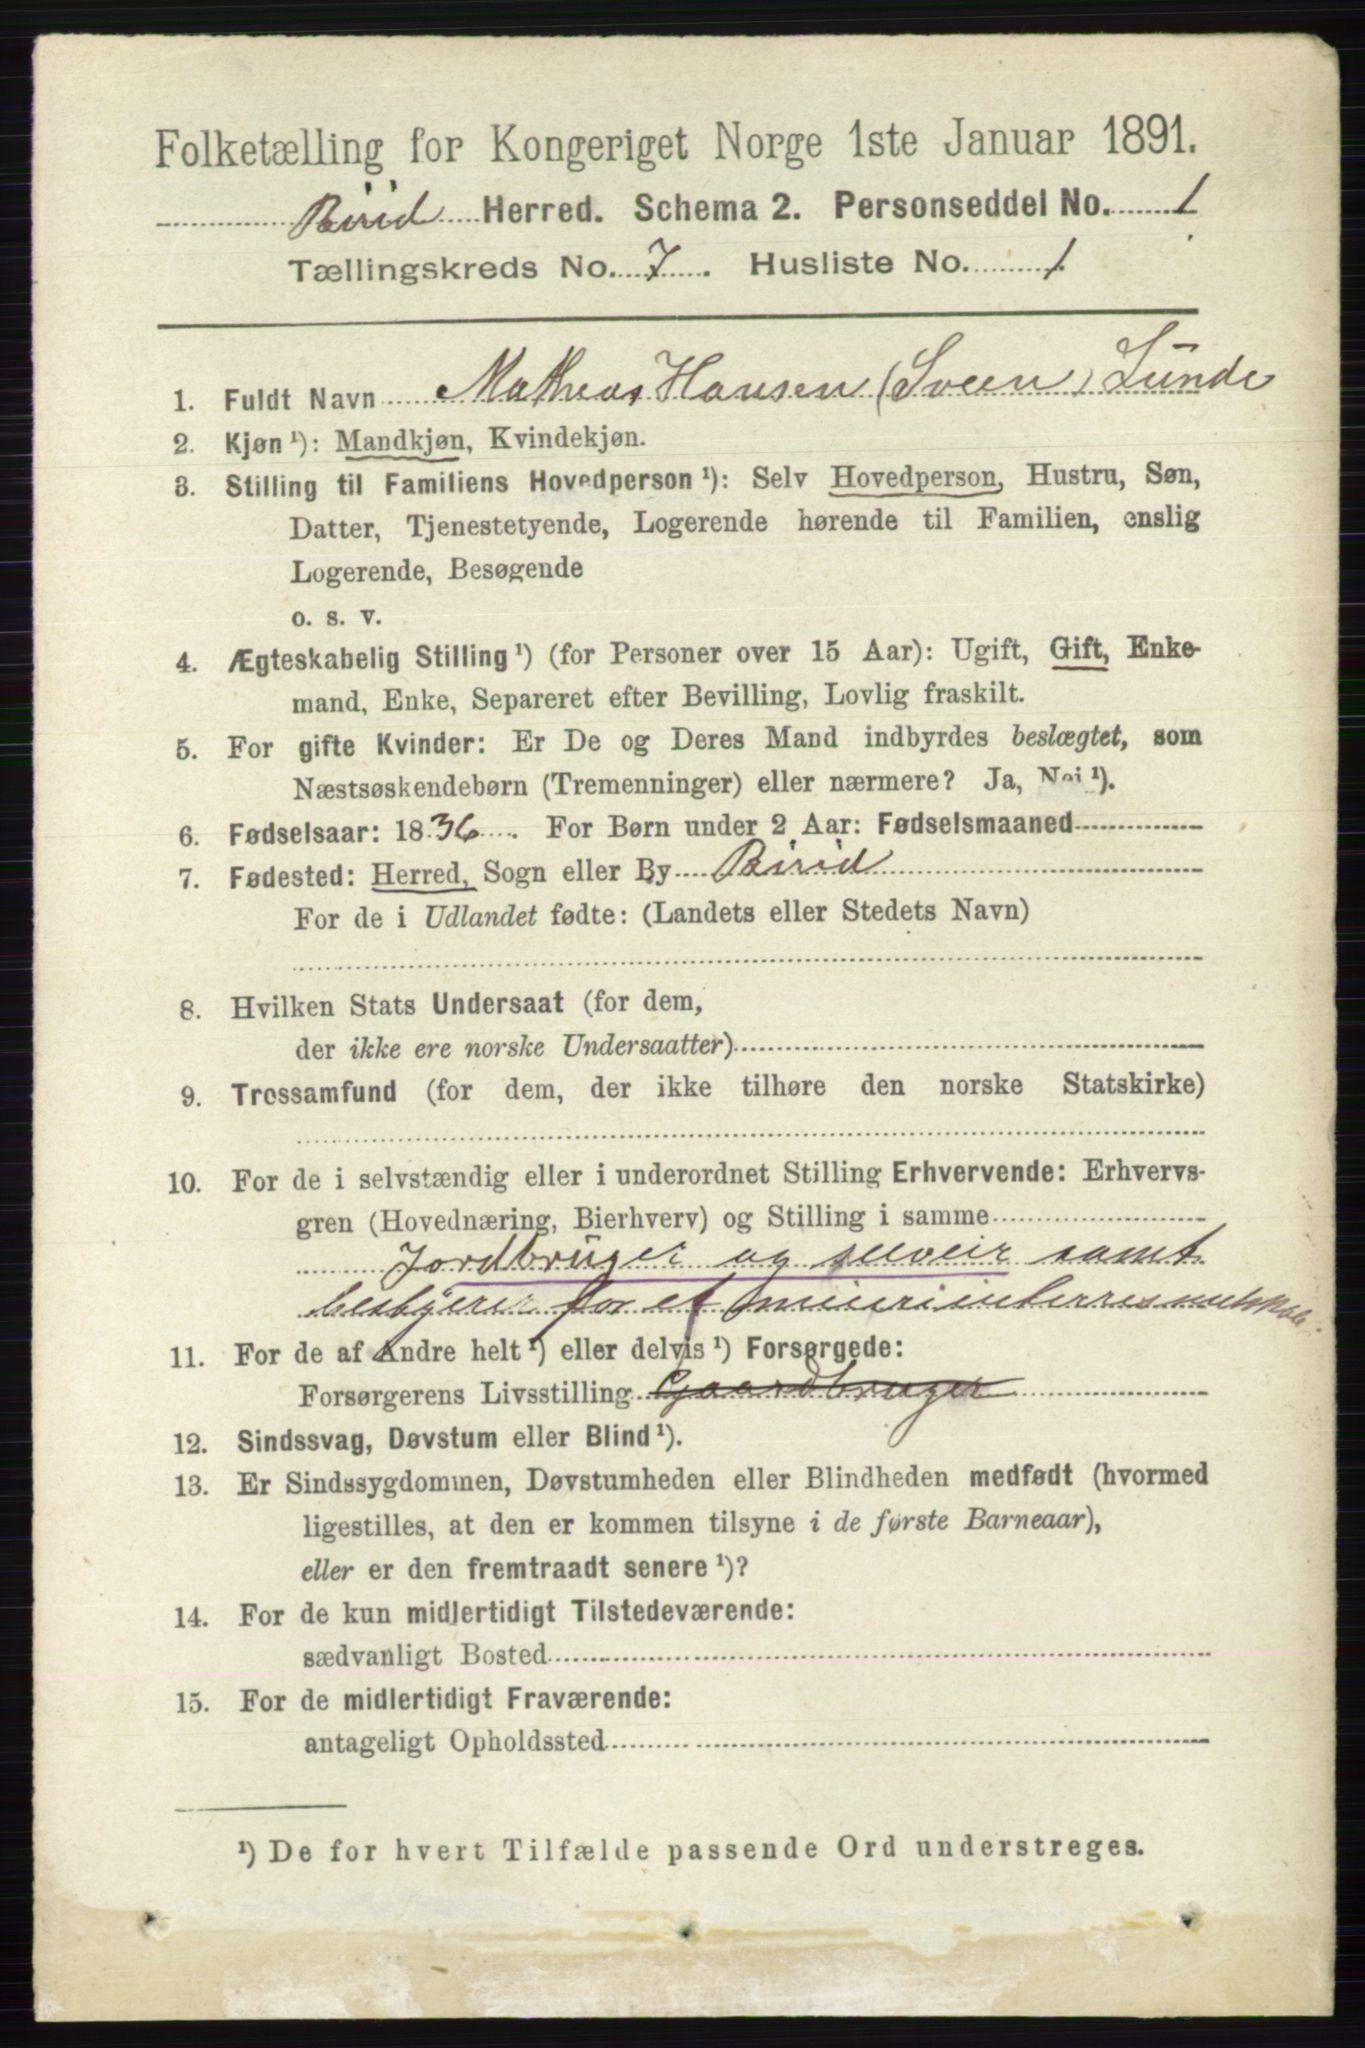 Folketælling for Kongeriget Norge 1ste Januar 1891.
Birid Herred. Schema 2. Personseddel No. 1
Tællingskreds No. 7. Husliste No. 1.
1. Fuldt Navn Matheas Hansen (Sveen) Lunde
2. Kjøn ¹): Mandkjøn, Kvindekjøn.
3. Stilling til Familiens Hovedperson ¹): Selv Hovedperson, Hustru, Søn,
Datter, Tjenestetyende, Logerende hørende til Familien, enslig
Logerende, Besøgende
o. s. v.
4. Ægteskabelig Stilling ¹) (for Personer over 15 Aar): Ugift, Gift, Enke-
mand, Enke, Separeret efter Bevilling, Lovlig fraskilt.
5. For gifte Kvinder: Er De og Deres Mand indbyrdes beslægtet, som
Næstsøskendebørn (Tremenninger) eller nærmere? Ja, Nei ¹).
6. Fødselsaar: 1836. For Børn under 2 Aar: Fødselsmaaned
7. Fødested: Herred, Sogn eller By Birid
For de i Udlandet fødte: (Landets eller Stedets Navn)
8. Hvilken Stats Undersaat (for dem,
der ikke ere norske Undersaatter)
9. Trossamfund (for dem, der ikke tilhøre den norske Statskirke)
10. For de i selvstændig eller i underordnet Stilling Erhvervende: Erhvervs-
gren (Hovednæring, Bierhverv) og Stilling i samme
Jordbruger og selveir samt
bestyrer for et
11. For de af Andre helt ¹) eller delvis ¹) Forsørgede:
Forsørgerens Livsstilling Gaardbruger
12. Sindssvag, Døvstum eller Blind ¹).
13. Er Sindssygdommen, Døvstumheden eller Blindheden medfødt (hvormed
ligestilles, at den er kommen tilsyne i de første Barneaar),
eller er den fremtraadt senere ¹)?
14. For de kun midlertidigt Tilstedeværende:
sædvanligt Bosted
15. For de midlertidigt Fraværende:
antageligt Opholdssted
¹) De for hvert Tilfælde passende Ord understreges.